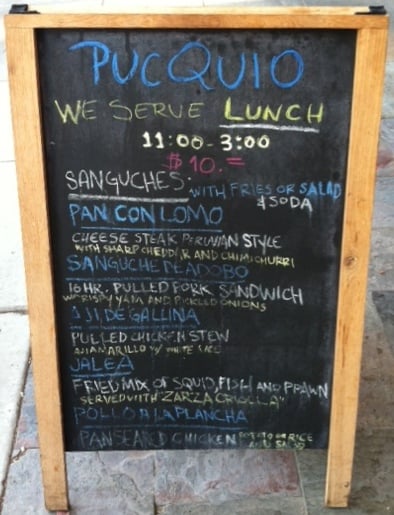 PUCQUIO
WE SERVE LUNCH
11:00-3:00
$10.=
SANGUCHES: WITH FRIES OR SALAD
& SODA
PAN CON LOMO
CHEESE STEAK PERUVIAN STYLE
WITH SHARP CHEDDAR AND CHIMICHURRI
SANGUCHE DE ADOBO
16 HR. PULLED PORK SANDWICH
W/CRISPY YAM AND PICKLED ONIONS
AJI DE GALLINA
PULLED CHICKEN STEW
AJI AMARILLO W/ WHITE RICE
JALEA
FRIED MIX OF SQUID, FISH AND PRAWN
SERVED WITH "ZARZA CRIOLLA"
POLLO A LA PLANCHA
PAN SEARED CHICKEN POTATO OR RICE
AND